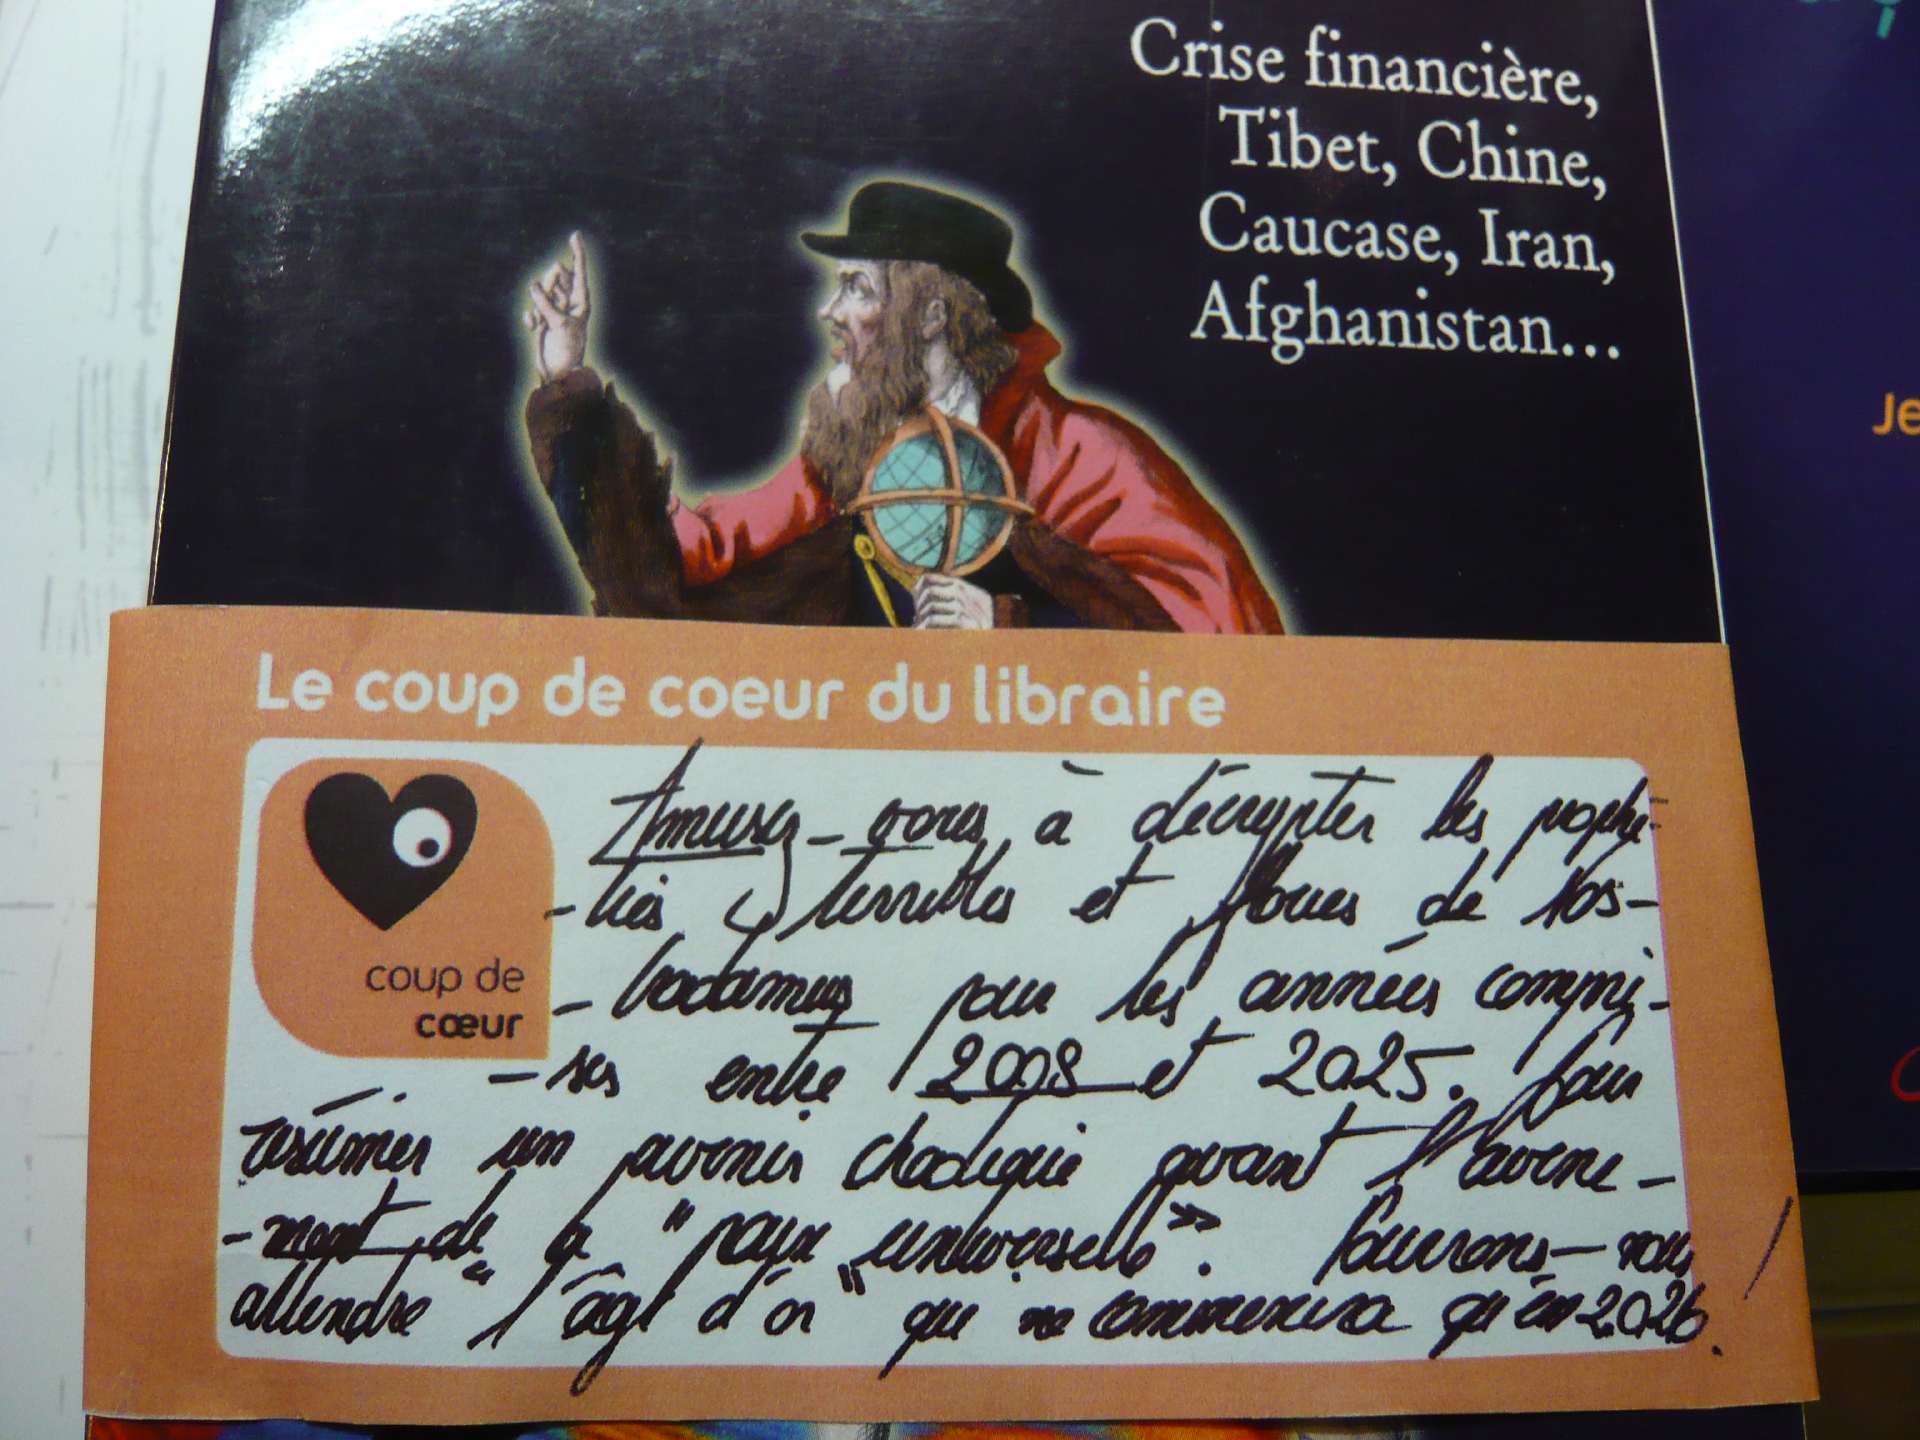 Crise financière,
Tibet, Chine,
Caucase, Iran,
Afghanistan...
Je
Le coup de coeur du libraire
coup de
cœur
Amusez-vous à décrypter les prophé-
-ties terribles et floues de Nos-
-tradamus pour les années compri-
-ses entre 2008 et 2025. Pour
résumer un avenir chaotique avant l'avène-
-ment de la "paix universelle". Pourrons-nous
attendre "l'âge d'or" qui ne commencera qu'en 2026.